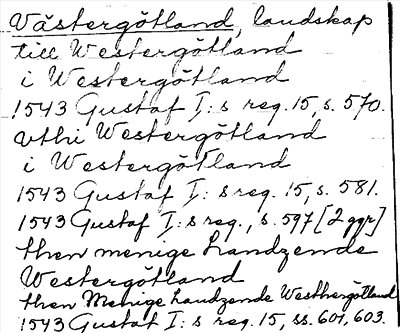 Västergötland, landskap
till Westergötland
i Westergötland
1543 Gustaf I:s reg. 15, s. 570.
vthi Westergötland
i Westergötland
1543 Gustaf I:s reg. 15, s. 581.
1543 Gustaf I:s reg., s. 597 [2 ggr]
then menige Landzende
Westergötland
then Menige Landzende Westhergötland
1543 Gustaf I:s reg. 15, ss. 601, 603.